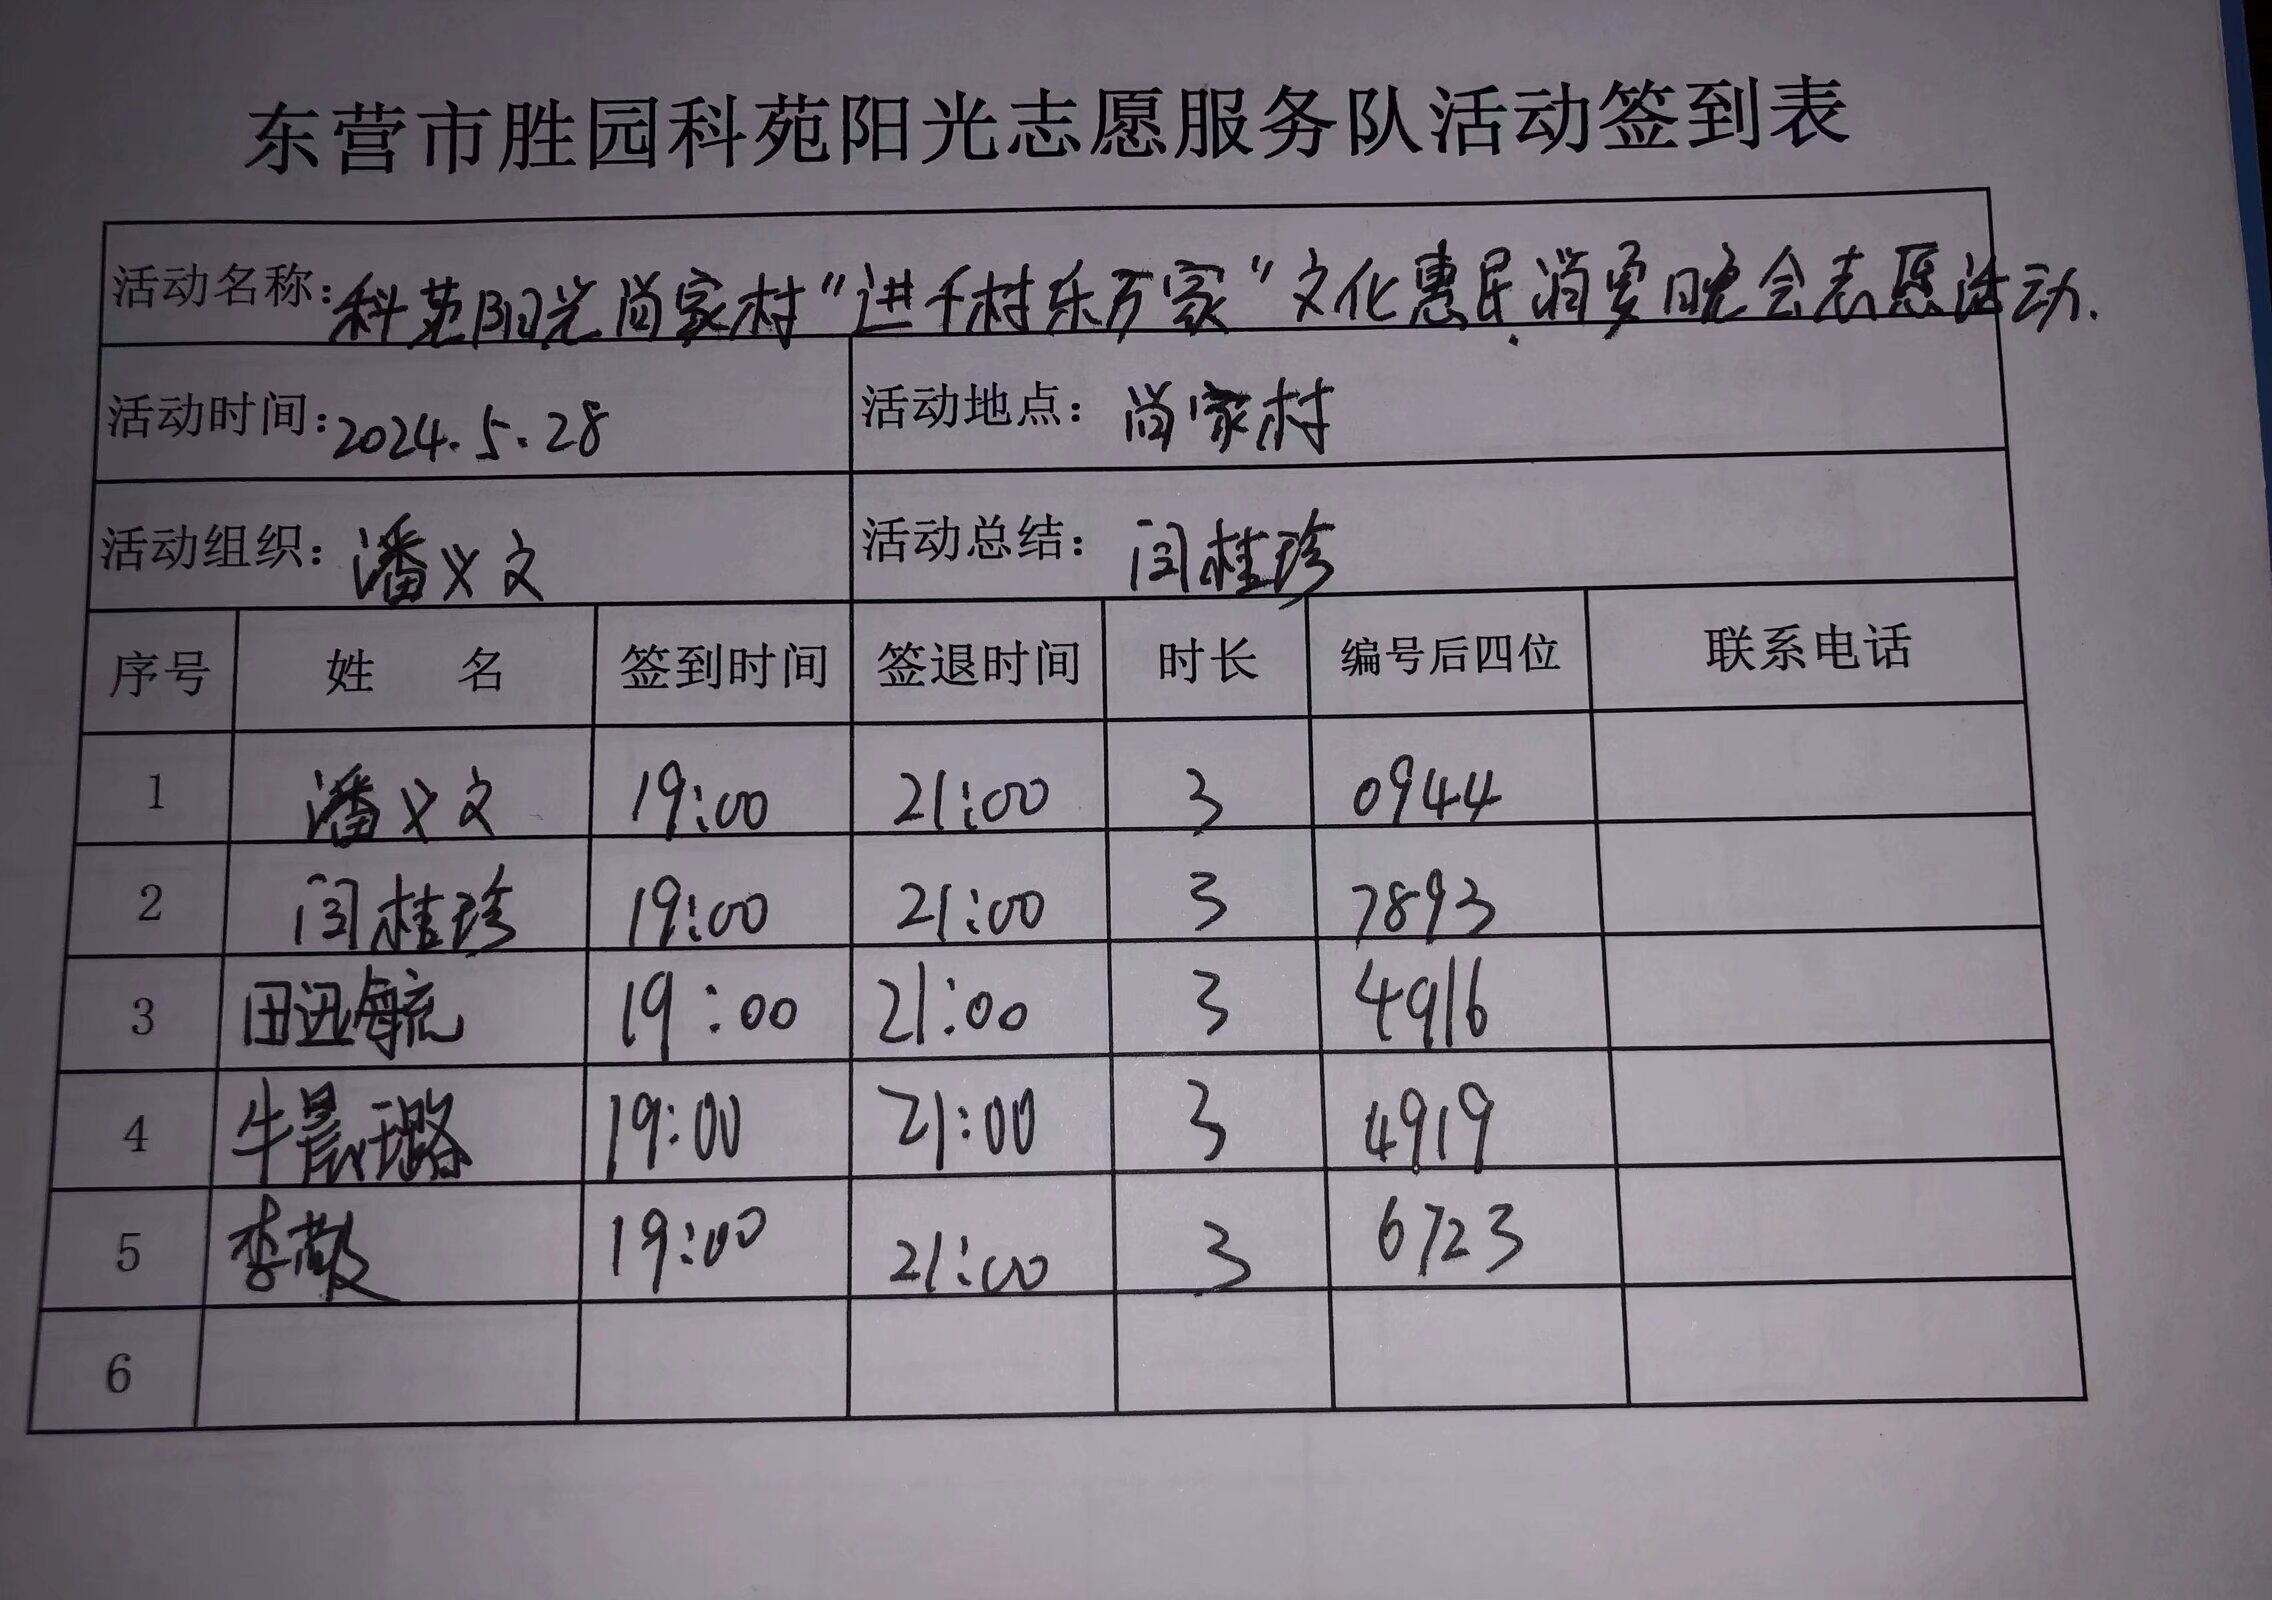 东营市胜园科苑阳光志愿服务队活动签到表
活动名称：科苑阳光尚家村“进千村乐万家”文化惠民消夏晚会志愿活动.
活动时间：2024.5.28 活动地点：尚家村
活动组织：潘义文 活动总结：闫桂珍
序号 姓名 签到时间 签退时间 时长 编号后四位 联系电话
1 潘义文 19:00 21:00 3 0944
2 闫桂珍 19:00 21:00 3 7893
3 田迅毓 19:00 21:00 3 4916
4 牛晨璐 19:00 21:00 3 4919
5 李敬 19:00 21:00 3 6723
6